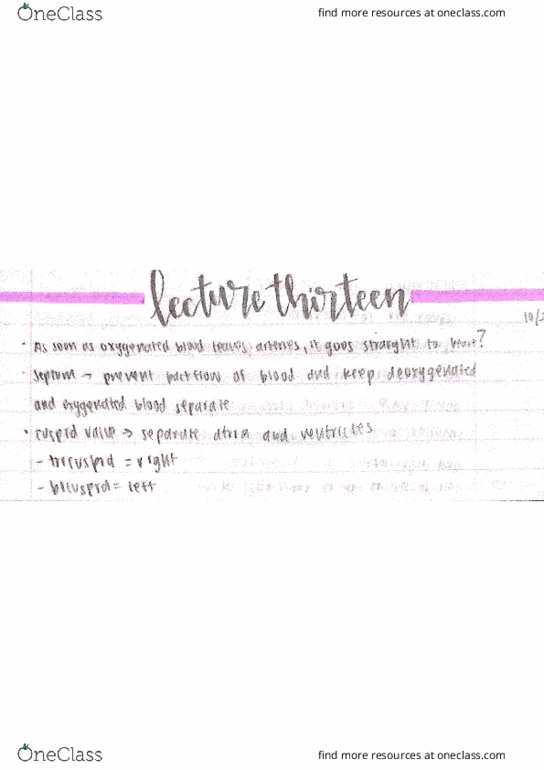 OneClass
find more resources at oneclass.com
lecture thirteen
10/
· As soon as oxygenated blood leaves arteries, it goes straight to heart?
· septum → prevent backflow of blood and keep deoxygenated
and oxygenated blood separate
· cuspid valve → separate atria and ventricles
- tricuspid = right
- bicuspid = left
OneClass
find more resources at oneclass.com